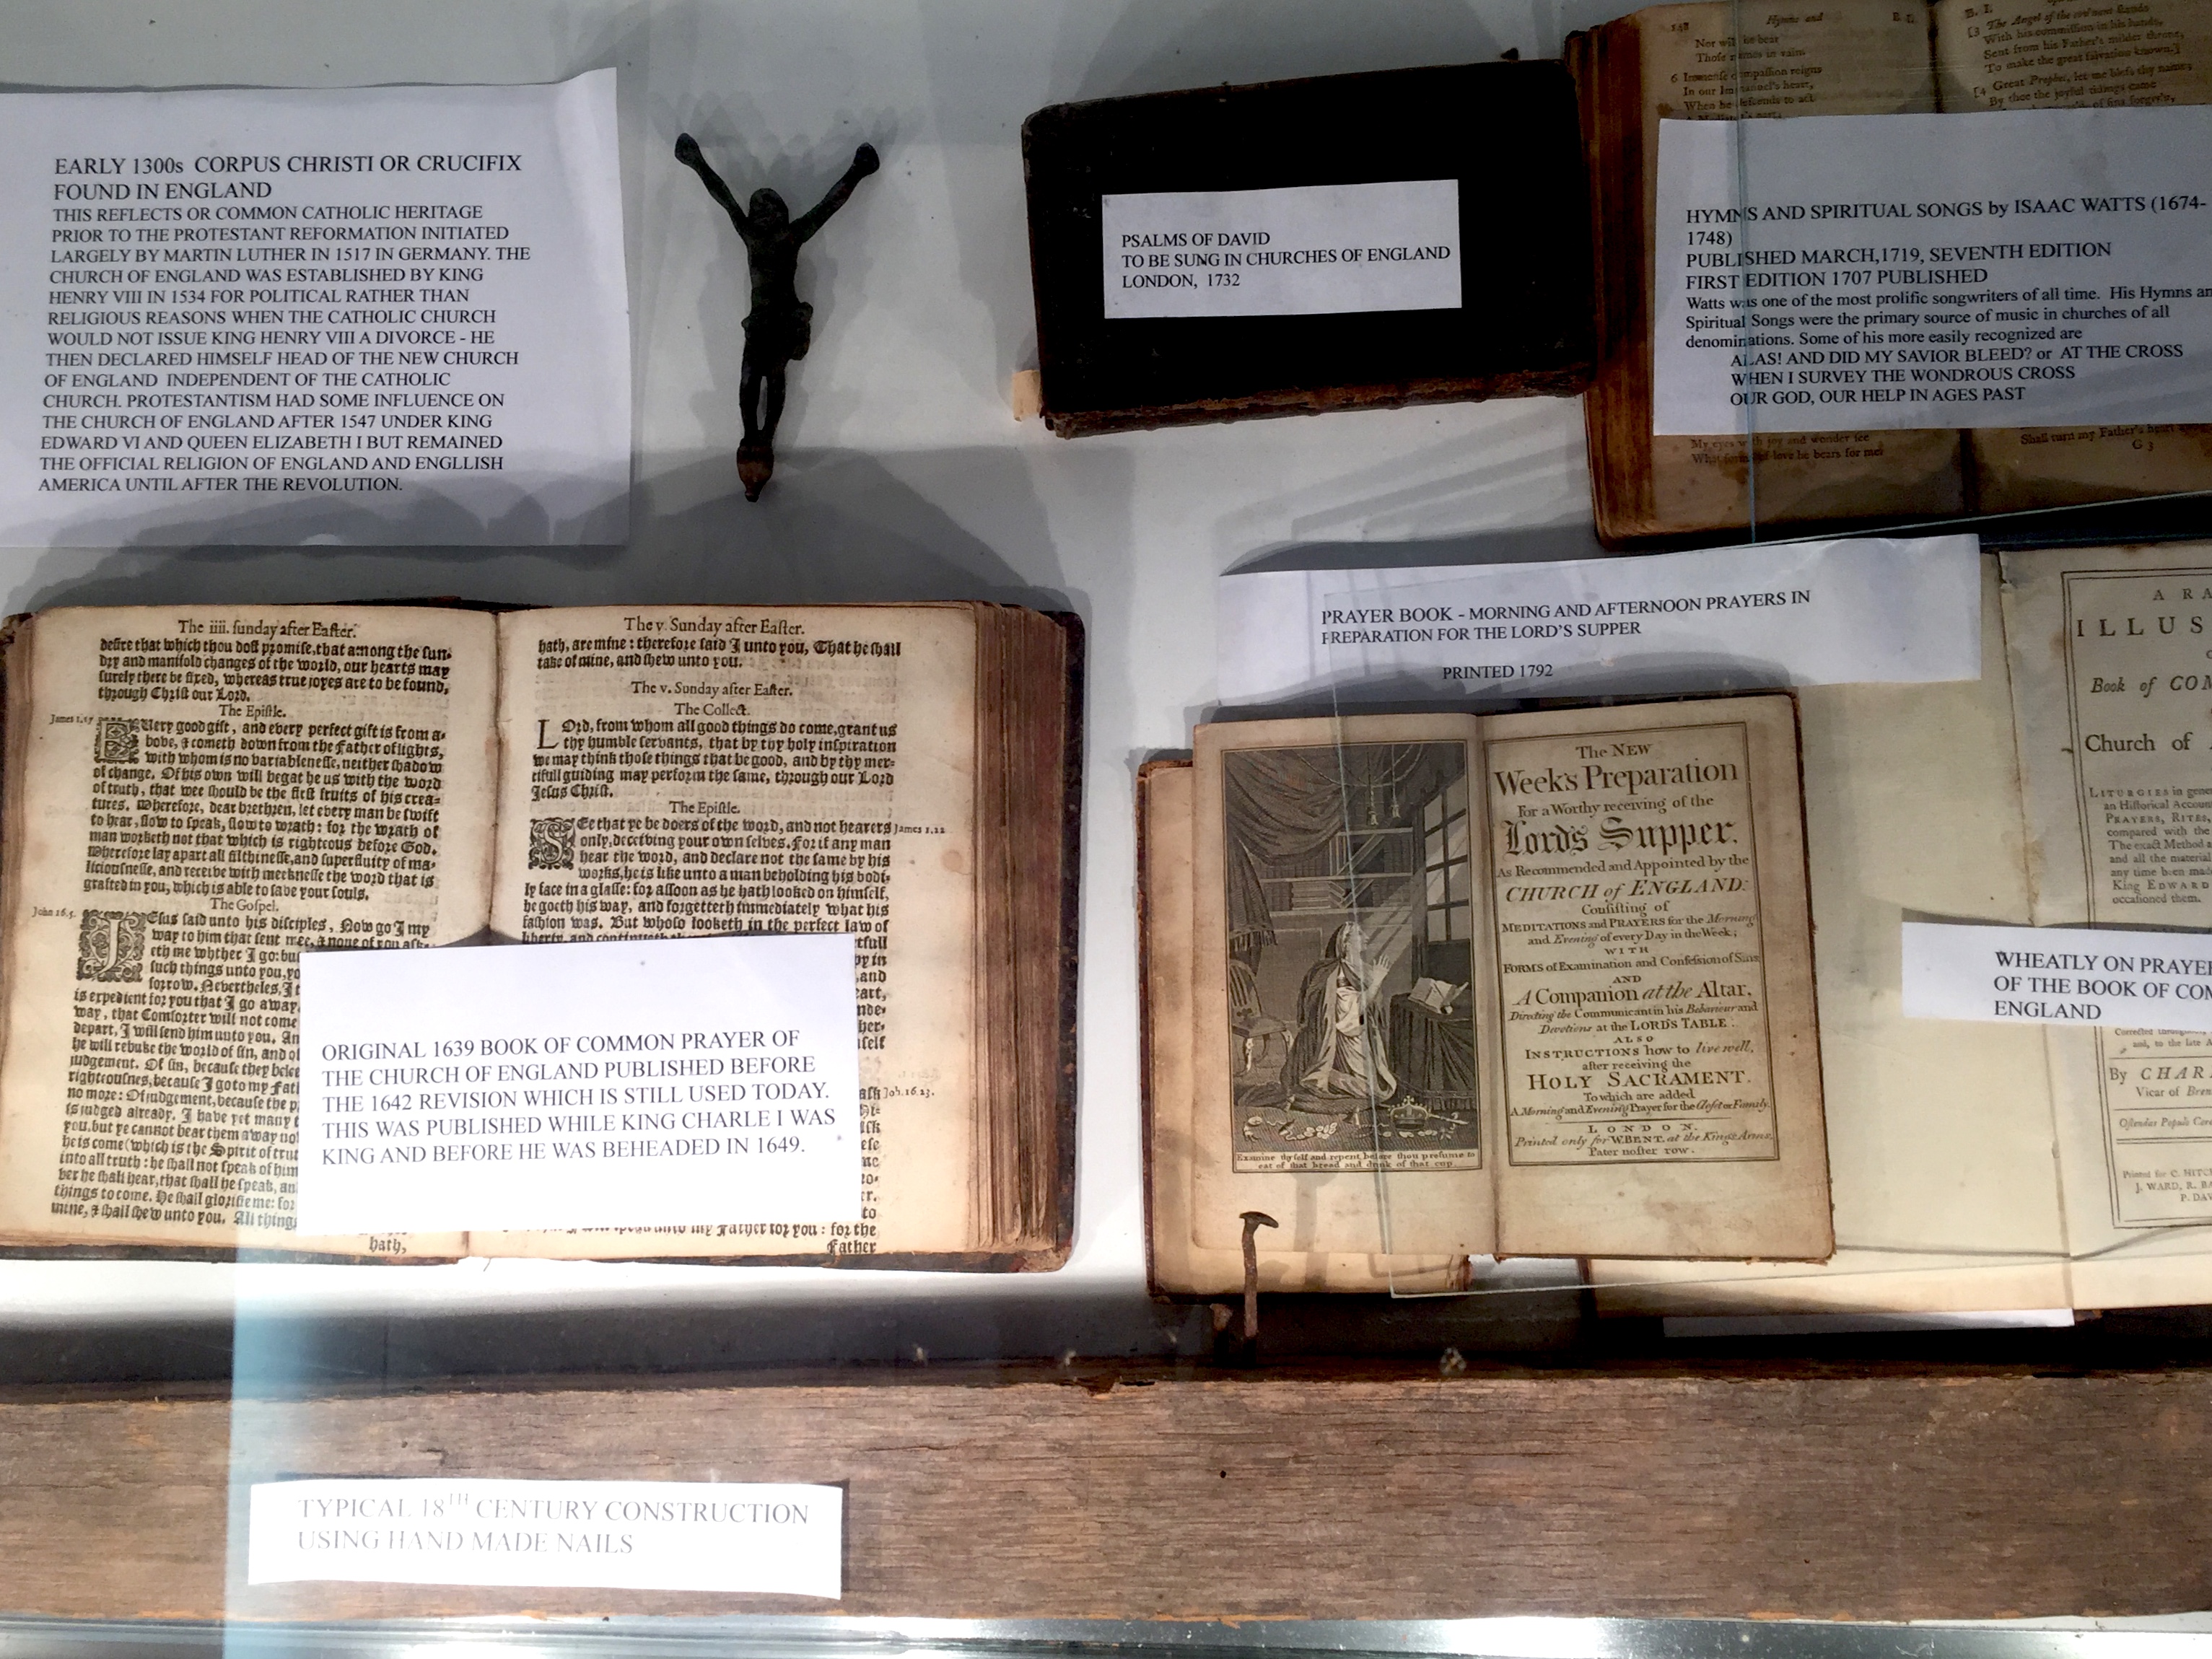 EARLY 1300s CORPUS CHRISTI OR CRUCIFIX
FOUND IN ENGLAND
THIS REFLECTS OR COMMON CATHOLIC HERITAGE
PRIOR TO THE PROTESTANT REFORMATION INITIATED
LARGELY BY MARTIN LUTHER IN 1517 IN GERMANY. THE
CHURCH OF ENGLAND WAS ESTABLISHED BY KING
HENRY VIII IN 1534 FOR POLITICAL RATHER THAN
RELIGIOUS REASONS WHEN THE CATHOLIC CHURCH
WOULD NOT ISSUE KING HENRY VIII A DIVORCE - HE
THEN DECLARED HIMSELF HEAD OF THE NEW CHURCH
OF ENGLAND INDEPENDENT OF THE CATHOLIC
CHURCH. PROTESTANTISM HAD SOME INFLUENCE ON
THE CHURCH OF ENGLAND AFTER 1547 UNDER KING
EDWARD VI AND QUEEN ELIZABETH I BUT REMAINED
THE OFFICIAL RELIGION OF ENGLAND AND ENGLLISH
AMERICA UNTIL AFTER THE REVOLUTION.
PSALMS OF DAVID
TO BE SUNG IN CHURCHES OF ENGLAND
LONDON, 1732
148 Hymns and B. I.
Nor will he bear
Those names in vain.
6 Immense compassion reigns
In our Immanuel's heart,
When he descends to act
B. I.
[3 The Angel of the cov'nant stands
With his commission in his hands,
Sent from his Father's milder throne,
To make the great salvation known.]
[4 Great Prophet, let me bless thy name;
By thee the joyful tidings came
HYMNS AND SPIRITUAL SONGS by ISAAC WATTS (1674-
1748)
PUBLISHED MARCH,1719, SEVENTH EDITION
FIRST EDITION 1707 PUBLISHED
Watts was one of the most prolific songwriters of all time. His Hymns an
Spiritual Songs were the primary source of music in churches of all
denominations. Some of his more easily recognized are
ALAS! AND DID MY SAVIOR BLEED? or AT THE CROSS
WHEN I SURVEY THE WONDROUS CROSS
OUR GOD, OUR HELP IN AGES PAST
My eyes with joy and wonder see
What forms of love he bears for me.
Shall turn my Father's heart
G 3
The iiii. sunday after Easter.
desire that which thou dost promise, that among the sun-
dry and manifold changes of the world, our hearts may
surely there be fixed, whereas true joyes are to be found,
through Christ our Lord.
The Epistle.
James 1.17
Every good gift, and every perfect gift is from a-
bove, & cometh down from the Father of lights,
with whom is no variablenesse, neither shadow
of change. Of his own will begat he us with the word
of truth, that wee should be the first fruits of his crea-
tures. Wherefore, dear brethren, let every man be swift
to hear, slow to speak, slow to wrath: for the wrath of
man worketh not that which is righteous before God.
Wherefore lay apart all filthinesse, and superfluity of ma-
liciousnesse, and receive with meeknesse the word that is
grafted in you, which is able to save your souls.
The Gospel.
John 16.5.
Jesus said unto his disciples, Now go I my
way to him that sent mee, & none of you ask-
eth me whther I go: bu
such things unto you, yo
sorrow. Nevertheles, I t
is expedient for you that I go away,
way, that Comforter will not come
depart, I will send him unto you. An
he will rebuke the world of sin, and of
judgement. Of sin, because they belee
righteousnes, because I go to my Fath
no more: Of judgement, because the p
is judged already. I have yet many t
you, but ye cannot bear them away no
he is come (which is the Spirit of trut
into all truth: he shall not speak of him
ver he shall hear, that shall he speak, an
things to come. He shall glorifie me: for
mine, & shall shew unto you. All thing
hath,
The v. Sunday after Easter.
hath, are mine: therefore said I unto you, That he shall
take of mine, and shew unto you.
The v. Sunday after Easter.
The Collect.
LOrd, from whom all good things do come, grant us
thy humble servants, that by thy holy inspiration
we may think those things that be good, and by thy mer-
cifull guiding may perform the same, through our Lord
Jesus Christ.
The Epistle.
SEe that ye be doers of the word, and not hearers James 1.22
only, deceiving your own selves. For if any man
hear the word, and declare not the same by his
works, he is like unto a man beholding his bodi-
ly face in a glasse: for assoon as he hath looked on himself,
he goeth his way, and forgetteth immediately what his
fashion was. But whoso looketh in the perfect law of
Joh. 16.23.
my Father for you: for the
Father
ORIGINAL 1639 BOOK OF COMMON PRAYER OF
THE CHURCH OF ENGLAND PUBLISHED BEFORE
THE 1642 REVISION WHICH IS STILL USED TODAY.
THIS WAS PUBLISHED WHILE KING CHARLE I WAS
KING AND BEFORE HE WAS BEHEADED IN 1649.
PRAYER BOOK - MORNING AND AFTERNOON PRAYERS IN
PREPARATION FOR THE LORD'S SUPPER
PRINTED 1792
Examine thyself and repent before thou presume to
eat of that bread and drink of that cup.
The NEW
Week's Preparation
For a Worthy receiving of the
Lord's Supper.
As Recommended and Appointed by the
CHURCH of ENGLAND:
Consisting of
MEDITATIONS and PRAYERS for the Morning
and Evening of every Day in the Week;
WITH
FORMS of Examination and Confession of Sins
AND
A Companion at the Altar,
Directing the Communicant in his Behaviour and
Devotions at the LORD'S TABLE:
ALSO
INSTRUCTIONS how to live well,
after receiving the
HOLY SACRAMENT.
To which are added
A Morning and Evening Prayer for the Closet or Family.
LONDON.
Printed only for W. BENT. at the Kings Arms,
Pater noster row.
A RA
ILLUS
Book of COM
Church of
LITURGIES in gene
an Historical Accoun
PRAYERS, RITES,
compared with the
The exact Method a
and all the material
any time been made
King EDWARD
occasioned them.
WHEATLY ON PRAYER
OF THE BOOK OF COM
ENGLAND
and, to the late A
By CHAR
Vicar of Bren
Ostendas Populo Cere
Printed for C. HITCH
J. WARD, R. BA
P. DAV
TYPICAL 18TH CENTURY CONSTRUCTION
USING HAND MADE NAILS